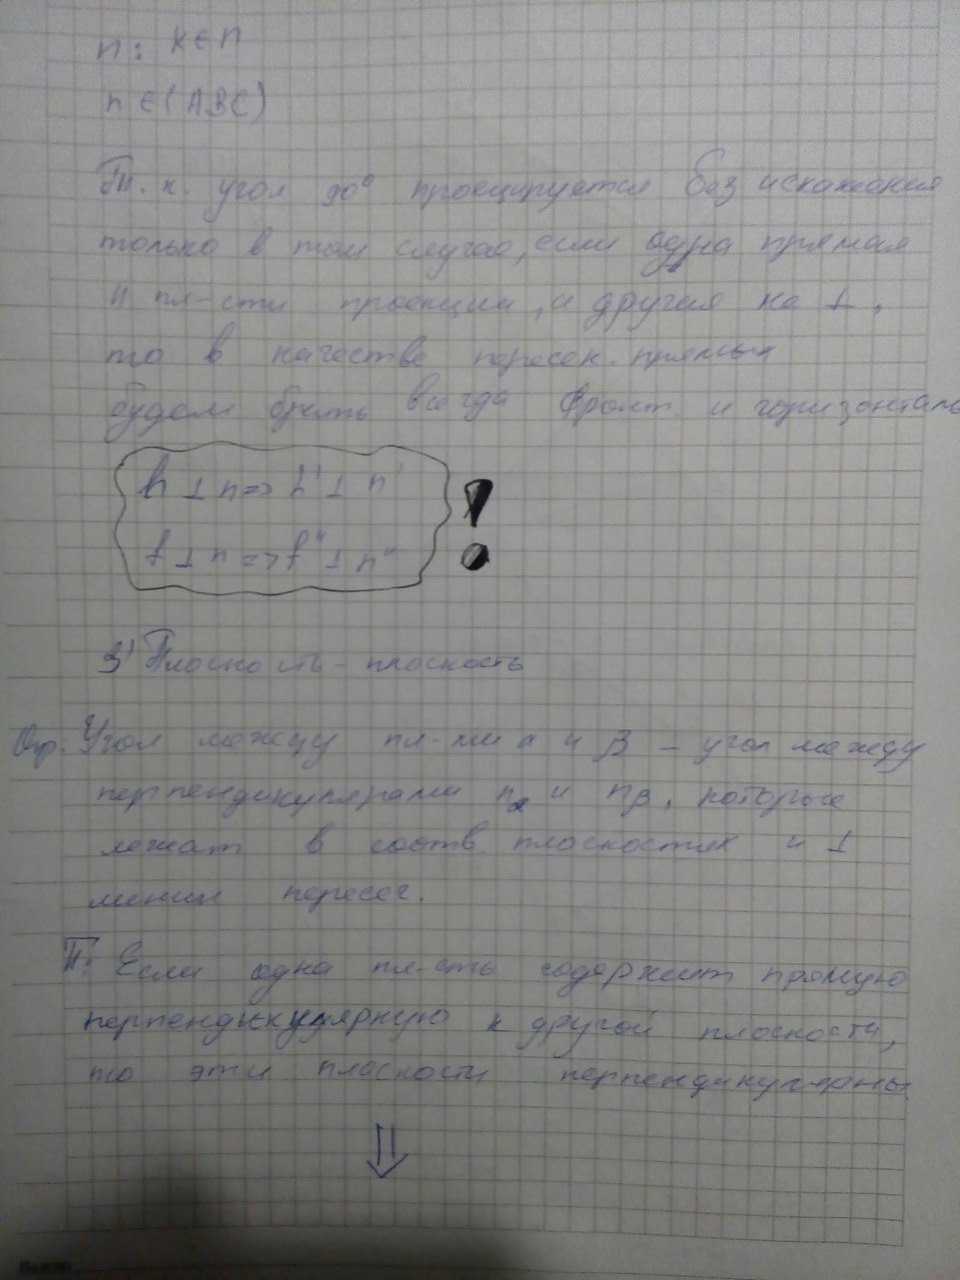 n: K∈n
n∈(ABC)
Т.к. угол 90° проецируется без искажения
только в том случае, если одна прямая
|| пл-сти проекции, а другая не ⊥,
то в качестве пересек. прямых
будем брать всегда фронт. и горизонталь
h⊥n=>h'⊥n'
f⊥n=>f"⊥n"
!
3) Плоскость-плоскость
Опр: Угол между пл-ми α и β - угол между
перпендикулярами nα и nβ, которые
лежат в соотв. плоскостях и ⊥
линии пересеч.
Т: Если одна пл-сть содержит прямую
перпендикулярную к другой плоскости,
то эти плоскости перпендикулярны
⇓